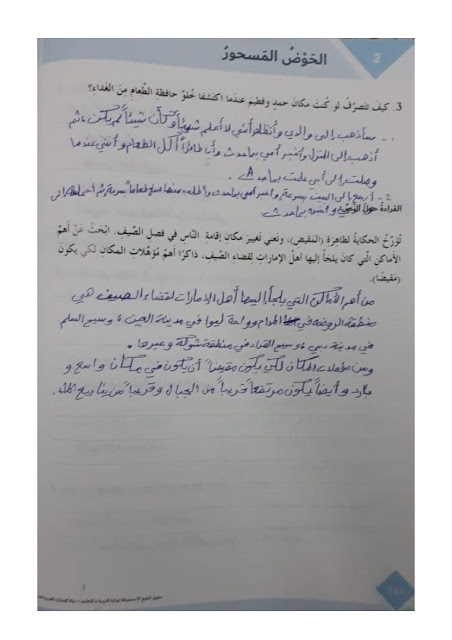 2
الحَوْضُ المَسحورُ
3. كيفَ تتصرّفُ لو كُنتَ مكانَ حمدٍ وفطيم عندَما اكتَشفا خُلوَّ حافظةِ الطّعامِ مِنَ الغَداءِ؟
1- سأذهب إلى والدي وأتظاهر أنني لا أعلم شيئاً وكأن شيئاً لم يكن، ثم
أذهب إلى المنزل وأخبر أمي بما حدث وأن طائراً أكل الطعام وأنني عندما
وصلت إلى أبي علمت بما حدث.
2- أرجع إلى البيت بسرعة وأخبر أمي بما حدث وأطلب منها طعاماً بسرعة ثم أحمله إلى
القراءةُ حولَ النّصِّ
وأخبره بما حدث
تُؤرّخُ الحكايةُ لظاهرَةِ (المَقيض)، وتَعني تغييرَ مكانِ إقامةِ النّاسِ في فصلِ الصّيفِ. ابْحَثْ عَنْ أهمِّ
الأماكنِ الّتي كانَ يلجأُ إليها أهلُ الإماراتِ لقضاءِ الصّيفِ، ذاكرًا أهمَّ مُؤهّلاتِ المكانِ لكي يكونَ
(مَقيضًا).
من أهم الأماكن التي يلجأ إليها أهل الإمارات لقضاء الصيف هي
منطقة الروضة في الهدام وواحة ليوا في مدينة العين، وسيح السلم
في مدينة دبي، وسيح القراد في منطقة شوكة وغيرها.
ومن مؤهلات المكان لكي يكون مقيضاً أن يكون في مكان واسع و
بارد وأيضاً يكون مرتفعاً قريباً من الجبال وقريباً من ينابيع الماء.